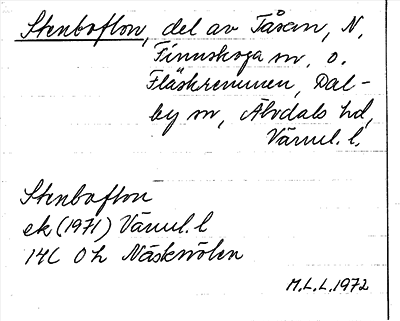 Stenboflon, del av Tåsan, N.
Finnskoga sn, o.
Fläskremmen, Dal-
by sn, Älvdals hd,
Värml. l.
Stenboflon
ek (1971) Värml. l
14C 0h Näsknölen
M.L.L. 1972